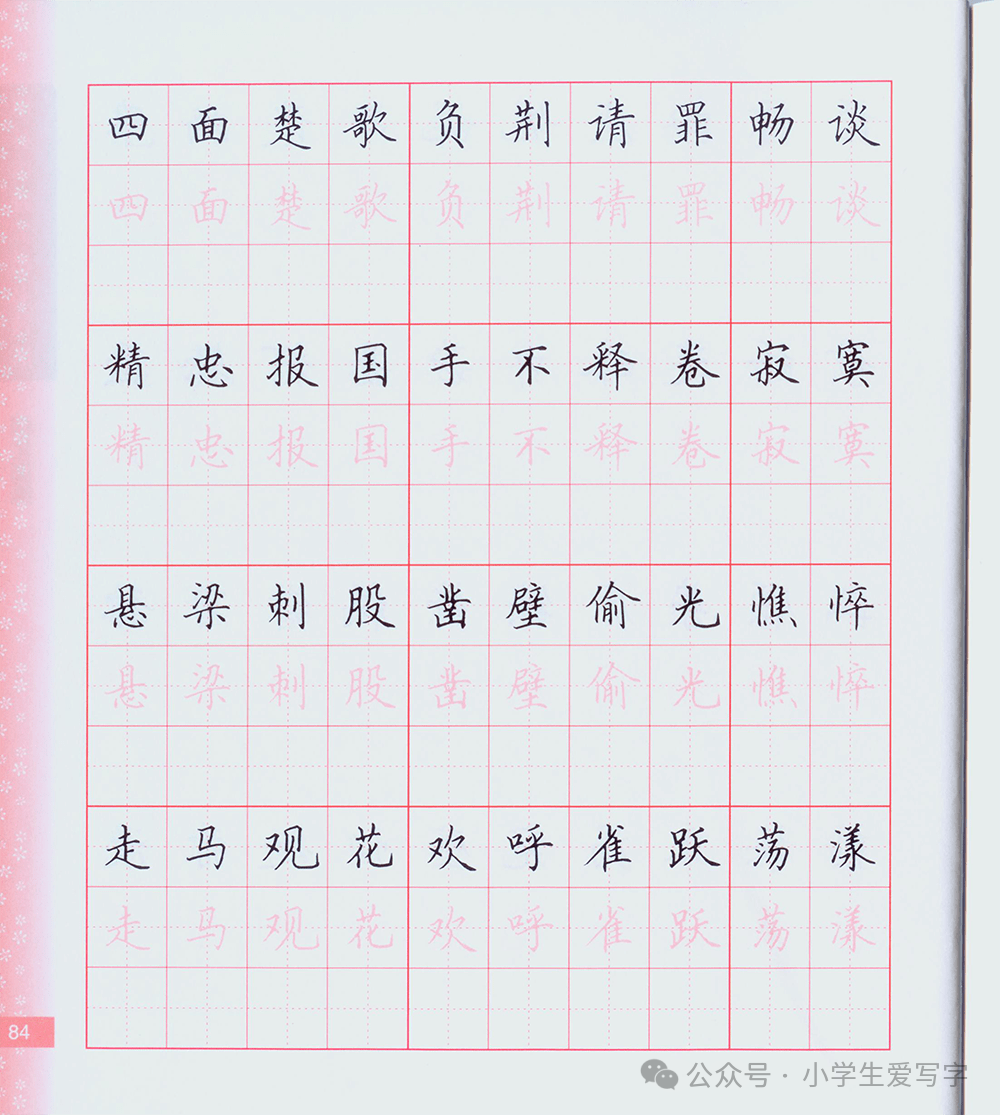 四面楚歌负荆请罪畅谈
四面楚歌负荆请罪畅谈
精忠报国手不释卷寂寞
精忠报国手不释卷寂寞
悬梁刺股凿壁偷光憔悴
悬梁刺股凿壁偷光憔悴
走马观花欢呼雀跃荡漾
走马观花欢呼雀跃荡漾
84
公众号·小学生爱写字